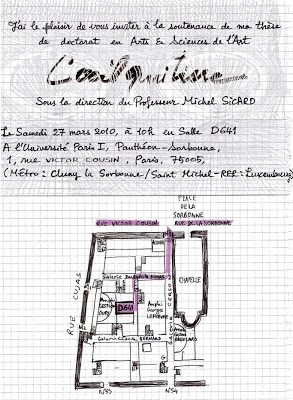 J'ai le plaisir de vous inviter à la soutenance de ma thèse
de doctorat en Arts Et Sciences de l'Art
Sous la direction du Professeur Michel SICARD
Le Samedi 27 mars 2010, à 10h en Salle D641
A l'Université Paris I, Panthéon-Sorbonne,
1, rue VICTOR COUSIN, Paris, 75005,
(Métro: Cluny la Sorbonne/Saint Michel-RER: Luxembourg)
PLACE
DE LA
SORBONNE
RUE VICTOR COUSIN
RUE DE LA SORBONNE
RUE CUJAS
Galerie
CHAPELLE
D641
Amphi
Georges
LEFEBVRE
N°54